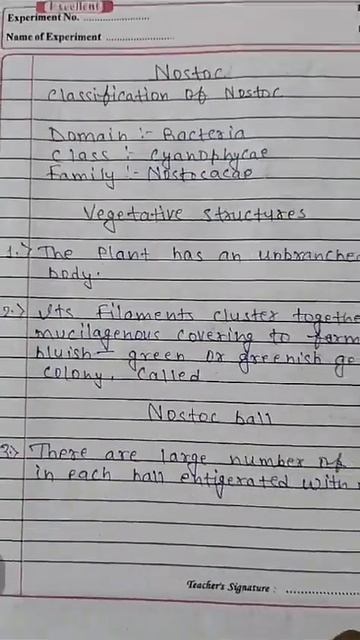 Excellent
Experiment No.
Name of Experiment
Nostoc
Classification of Nostoc
Domain :- Bacteria
Class :- Cyanophycae
Family :- Nostocacae
Vegetative structures
1.> The Plant has an unbranche
body.
2.> Its Filaments cluster togethe
mucilagenous covering to form
bluish - green or greenish ge
colony. Called
Nostoc ball
3.> There are large number of
in each ball
with
Teacher's Signature :